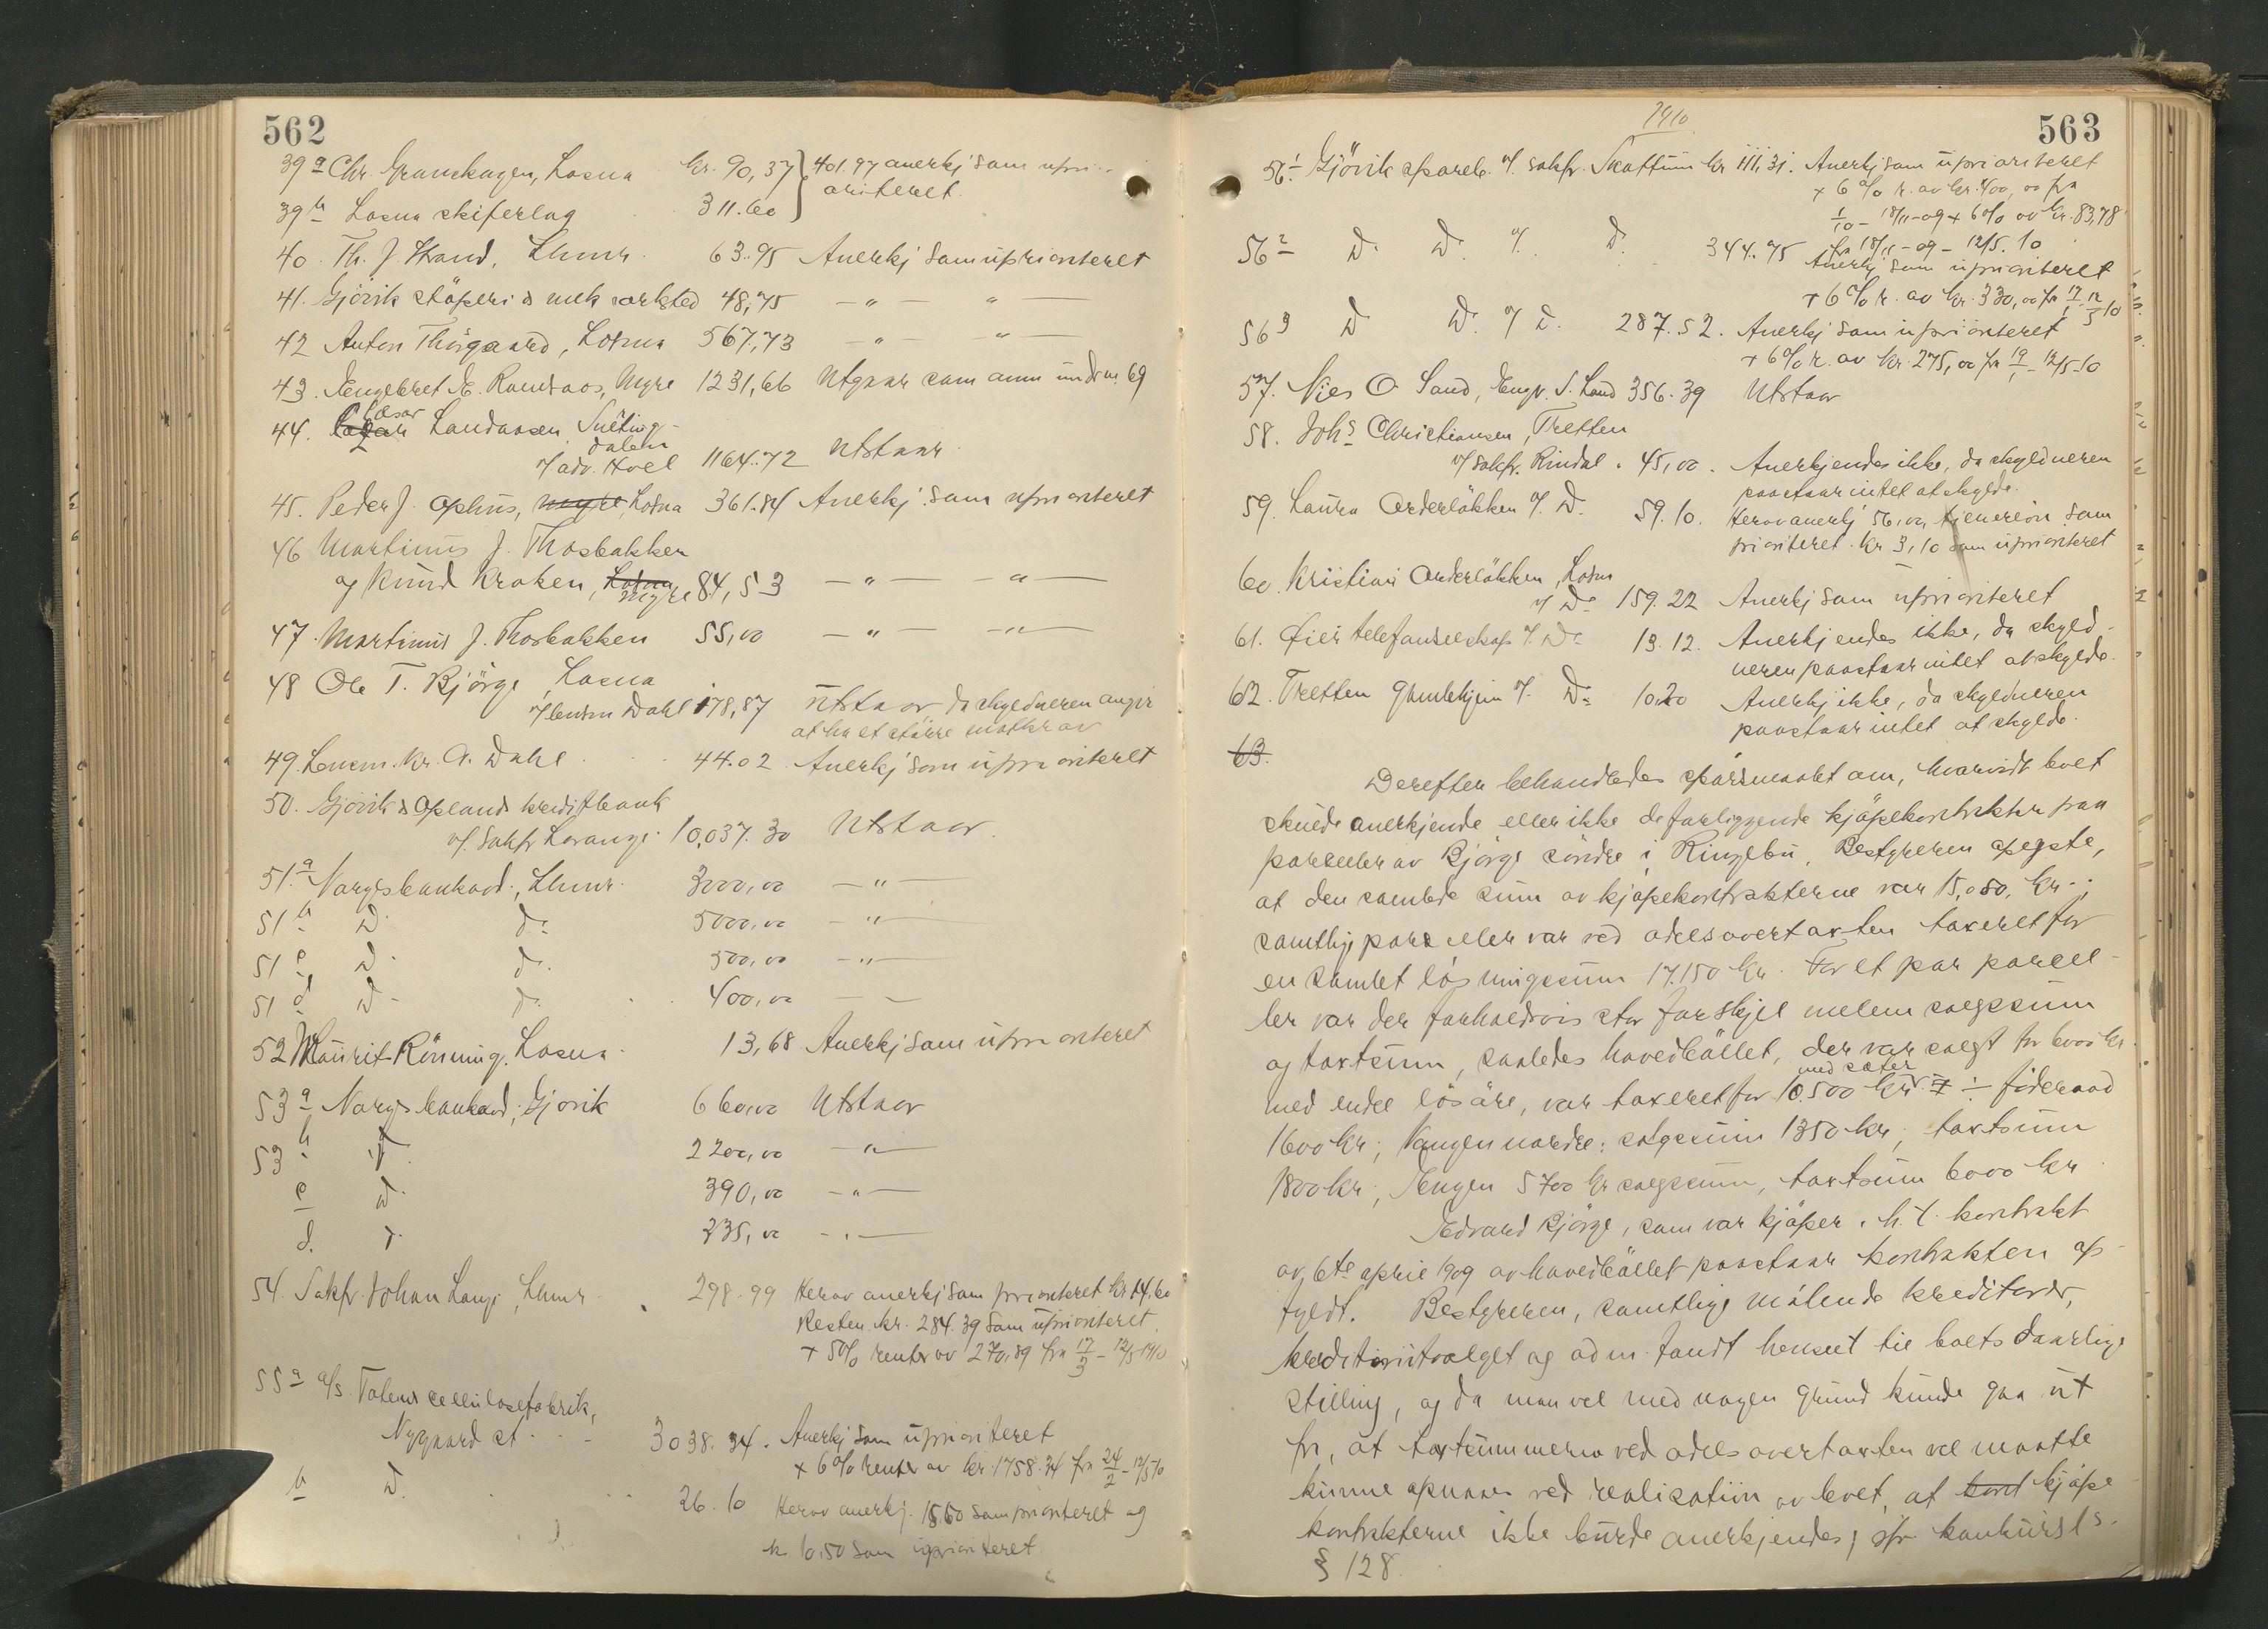 562
39a Chr. Granskagen, Losna kr. 90,37 } 401.97 anerkj som upri-
oriteret.
39b Losna skiferlag 311.60
40. Th. J. Strand, Lhmr. 63.95 Anerkj som uprioriteret
41. Gjövik stöperi & mek værksted 48,75 — " — " —
42 Anton Thorgaard, Losna 567,73 — " — " —
43. Engebret E. Randaas, Myre 1231,66 Utgaar som anm under no. 69
44. Cæsar Landaasen, Snerting-
dalen
v/ adv. Hoel 1164.72 Utstaar
45. Peder J. Ophus, Myre, Losna 361.84 Anerkj. som uprioriteret
46 Martinus J. Thosbakken
og Knud Kraken, Losna Myre 84,53 — " — " —
47. Martinus J. Thosbakken 55,00 — " — " —
48 Ole T. Björge, Losna
v/ lensm Dahl 178,87 Utstaar da skyldneren angir
at ha et större motkrav
49. Lensm. Kr. A. Dahl 44.02 Anerkj som uprioriteret
50. Gjövik & Oplands kreditbank
v/ sakfr Lorange. 10,037.30 Utstaar.
51.a Norges bankavd., Lhmr. 3000,00 — " —
51 b D. do 5000,00 — " —
51 c D. do. 500,00 — " —
51 d D. do. 400,00 — —
52 Maurit Rönning, Losna. 13,68 Anerkj som uprioriteret
53 a Norges bankavd; Gjövik 660,00 Utstaar
53 b D. 2200,00 — " —
c D. 390,00 — " —
d. D. 335,00 — " —
54. Sakfr. Johan Lange, Lhmr. 298.99 Herav anerkj som prioriteret kr 14,60
Resten kr. 284.39 som uprioriteret
+ 5% renter av 270,89 fra 17/3 – 12/5 1910
55 a a/s. Totens cellulosefabrik,
Nygaard st. 3038.34. Anerkj som uprioriteret
+ 6% renter av kr. 1758.34 fra 24/2 – 12/5 10
b D. 26.10 Herav anerkj. 15.60 som prioriteret og
kr 10.50 som uprioriteret.
1910
563
56.1 Gjövik spareb. v/ sakfr. Skattum kr 111,31. Anerkj som uprioriteret
+ 6% r. av kr. 400,00 fra
1/10 – 18/11 – 09 + 6% av kr. 83,78
fra 18/11 – 09 – 12/5. 10
56 2 D. D. v/. D. 344.75 Anerkj som uprioriteret
+ 6% r. av kr. 330,00 fra 17/1 12/5 10
56 3 D D. v/ D. 287.52. Anerkj som uprioriteret
+ 6% r. av kr. 275,00 fra 19/1 – 12/5 – 10
57. Nies O Sand, Engv. S. Land 356.39 Utstaar
58. Johs Christiansen, Tretten
v/ sakfr. Rindal. 45,00. Anerkjendes ikke, da skyldneren
paastaar intet at skylde.
59. Laura Onderlökken v/. D. 59.10. Herav anerkj 56,00, tjenerlön som
prioriteret. kr 3,10 som uprioriteret
60. Kristian Onderlökken, Losna
v/ Do 159.22 Anerkj som uprioriteret
61. Öier telefonselskap v/. Do 13.12. Anerkjendes ikke, da skyld-
neren paastaar intet at skylde.
62. Tretten gamlehjem v/. Do 10.20 Anerkj ikke, da skyldneren
paastaar intet at skylde.
63.
Derefter behandledes spörsmaalet om, hvorvidt boet
skulde anerkjende eller ikke de forliggende kjöpekontrakter paa
parceller av Björge söndre i Ringebu. Bestyreren oplyste,
at den samlede sum av kjöpekontrakterne var 15,080, kr.;
samtlige parceller var ved odelsovertaxten taxeret for
en samlet lösningssum 17.150 kr. For et par parcel-
ler var der forholdsvis stor forskjel mellem salgssum
og taxtsum, saaledes hovedböllet, der var solgt for 6000 kr
med endel lösöre, var taxeret for 10.500 kr med sæter ÷ föderaad
1600 kr; Vangen nordre: salgssum 1350 kr, taxtsum
1800 kr; Engen 5700 kr salgssum, taxtsum 6000 kr.
Edvard Björge, som var kjöper i h. t. kontrakt
av 6te april 1909 av hovedböllet paastaar kontrakten op-
fyldt. Bestyreren, samtlige mötende kreditorer,
kreditorutvalget og adm. fandt hensett til boets daarlige
stilling, og da man vel med nogen grund kunde gaa ut
fra, at taxtsummerne ved odelsovertaxten vel maatte
kunne opnaaes ved realisation av boet, at kont kjöpe-
kontrakterne ikke burde anerkjendes; jfr. konkursls.
§ 128.